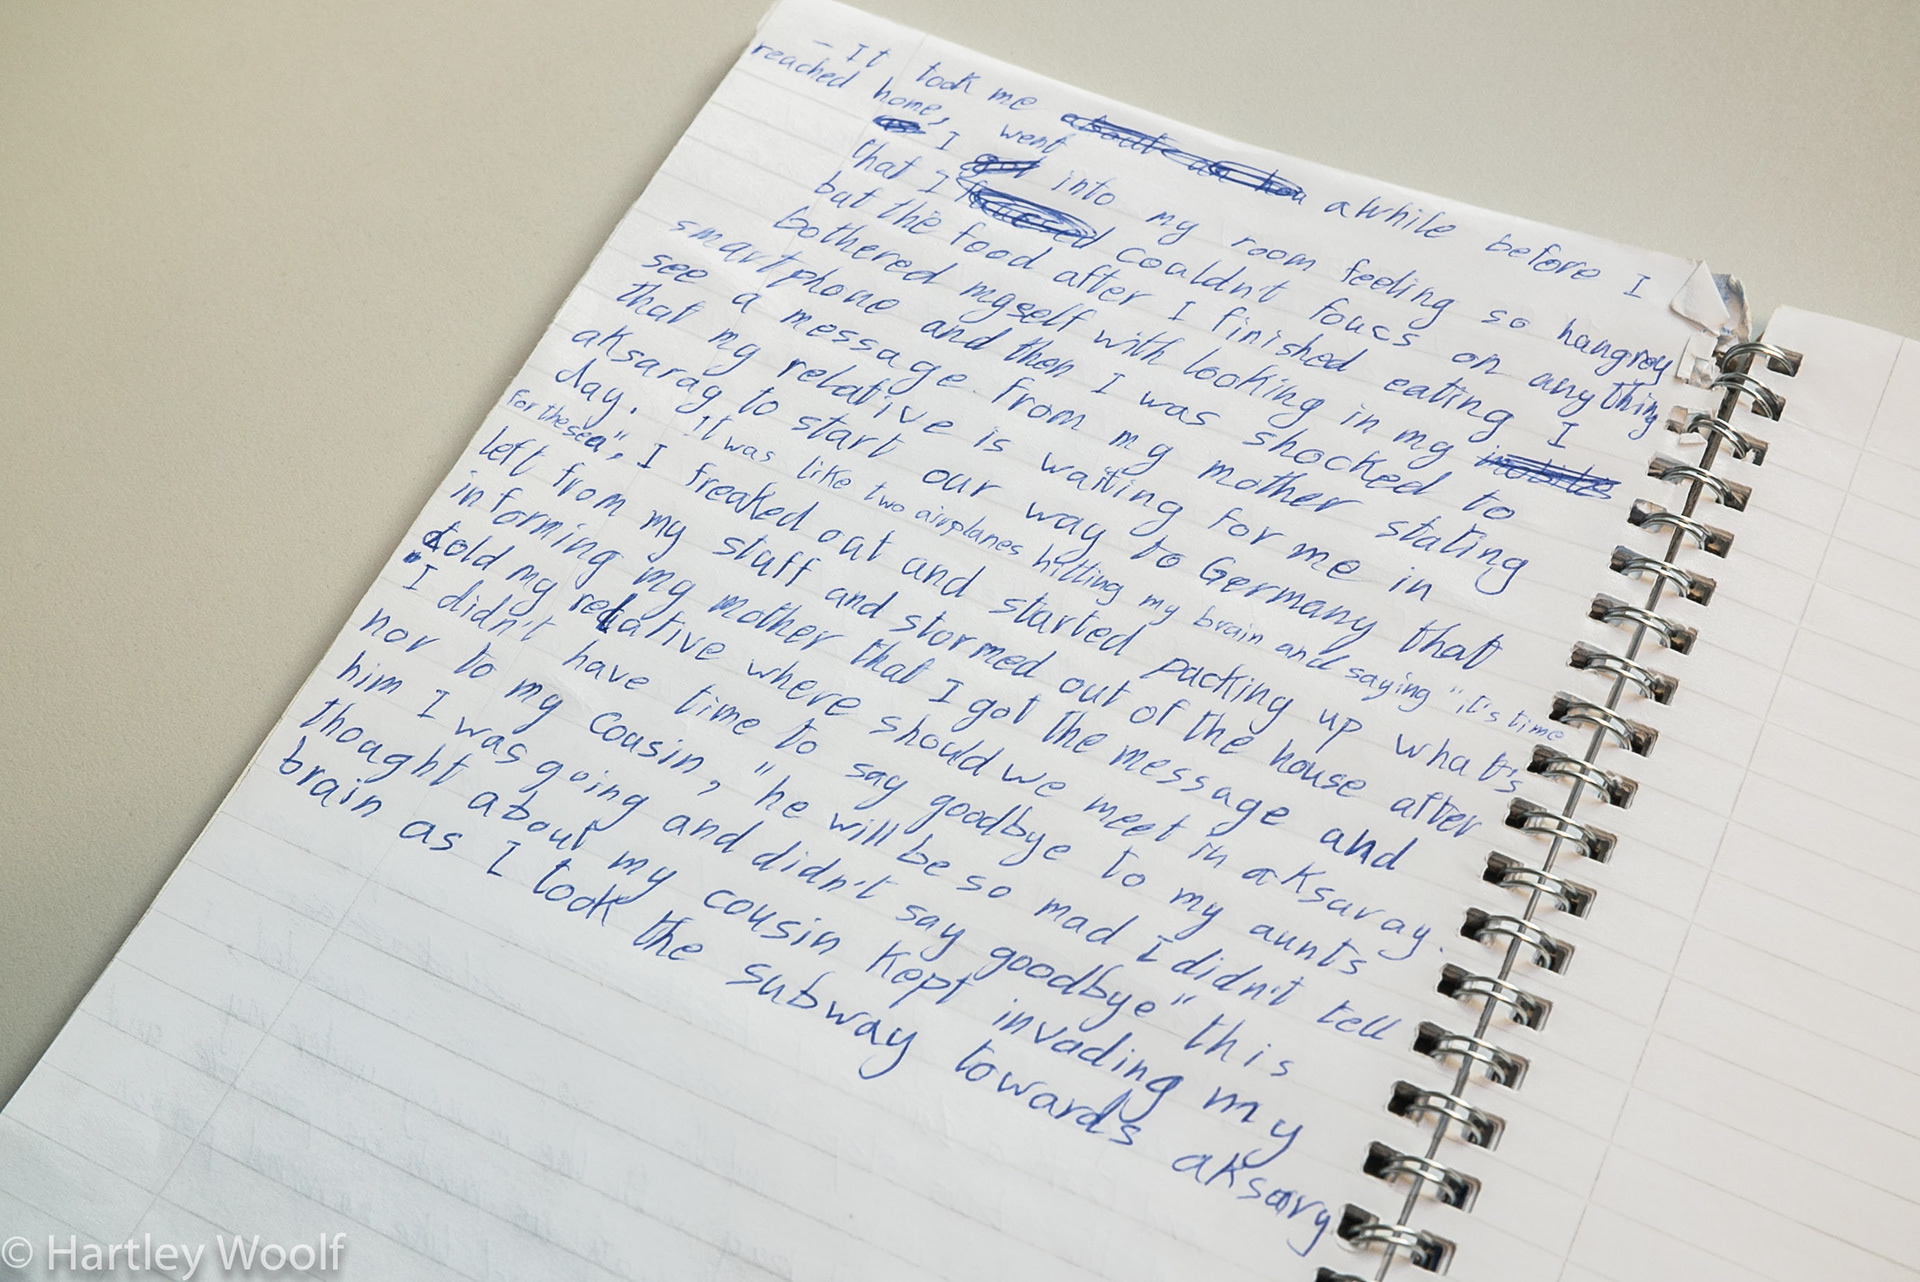 - It took me awhile before I
reached home, I went into my room feeling so hangrey
that I couldnt foucs on any thing
but the food after I finished eating I
bothered myself with looking in my
smartphone and then I was shocked to
see a message from my mother stating
that my relative is waiting for me in
aksarag to start our way to Germany that
day. It was like two airplanes hitting my brain and saying "it's time
for the sea", I freaked out and started packing up what's
left from my stuff and stormed out of the house after
informing my mother that I got the message and
told my relative where should we meet in aksaray.
I didn't have time to say goodbye to my aunts
nor to my cousin, "he will be so mad I didn't tell
him I was going and didn't say goodbye" this
thought about my cousin kept invading my
brain as I took the subway towards aksary.
© Hartley Woolf